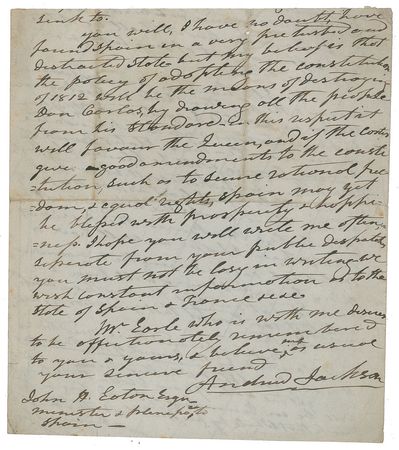 sink to.
you will, I have no doubt, have
found Spain in a very pretubed and
distracted state but my belief is that
the policy of adopting the constitution
of 1812 will be the means of destroying
Don Carlos, by drawing all the people
from his standard in this respect it
will favour the Queen, and if the Cortes
give good amendments to the consti
=tution, such as to secure rational free
=dom, & equal rights, Spain may yet
be blessed with prosperity & happi=
=ness. I hope you will write me often,
seperate from your public despatch,
you must not be lazy in writing we
wish constant information as to the
state of Spain & France &c &c
Mr Earle who is with me desires
to be affectionately remembered
to you & yours, & believe me as usual
your sincere friend
Andrew Jackson
John H. Eaton Esqr
minister & plenipo. to
Spain —